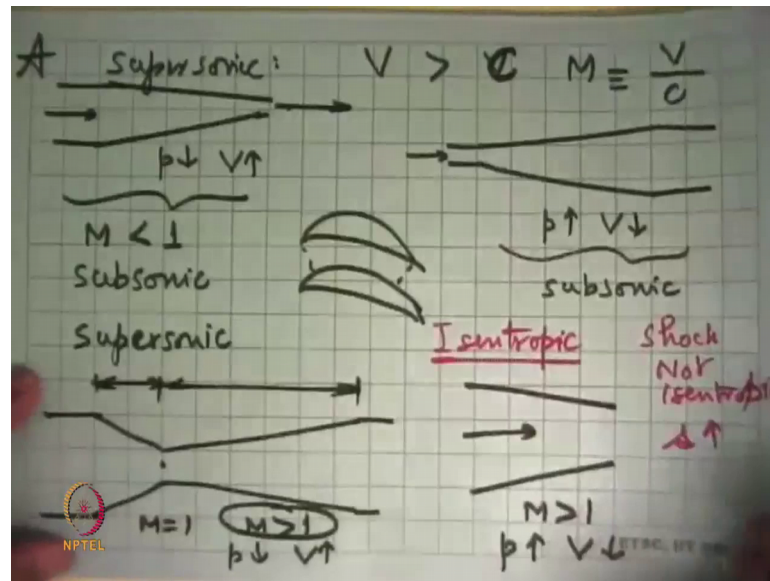 A Supersonic: V > C M ≡ V/C
p↓ V↑
M < 1
subsonic
p↑ V↓
subsonic
Supersonic
Isentropic
Shock
Not
isentropi
s↑
M=1 M>1
p↓ V↑
M>1
p↑ V↓
NPTEL